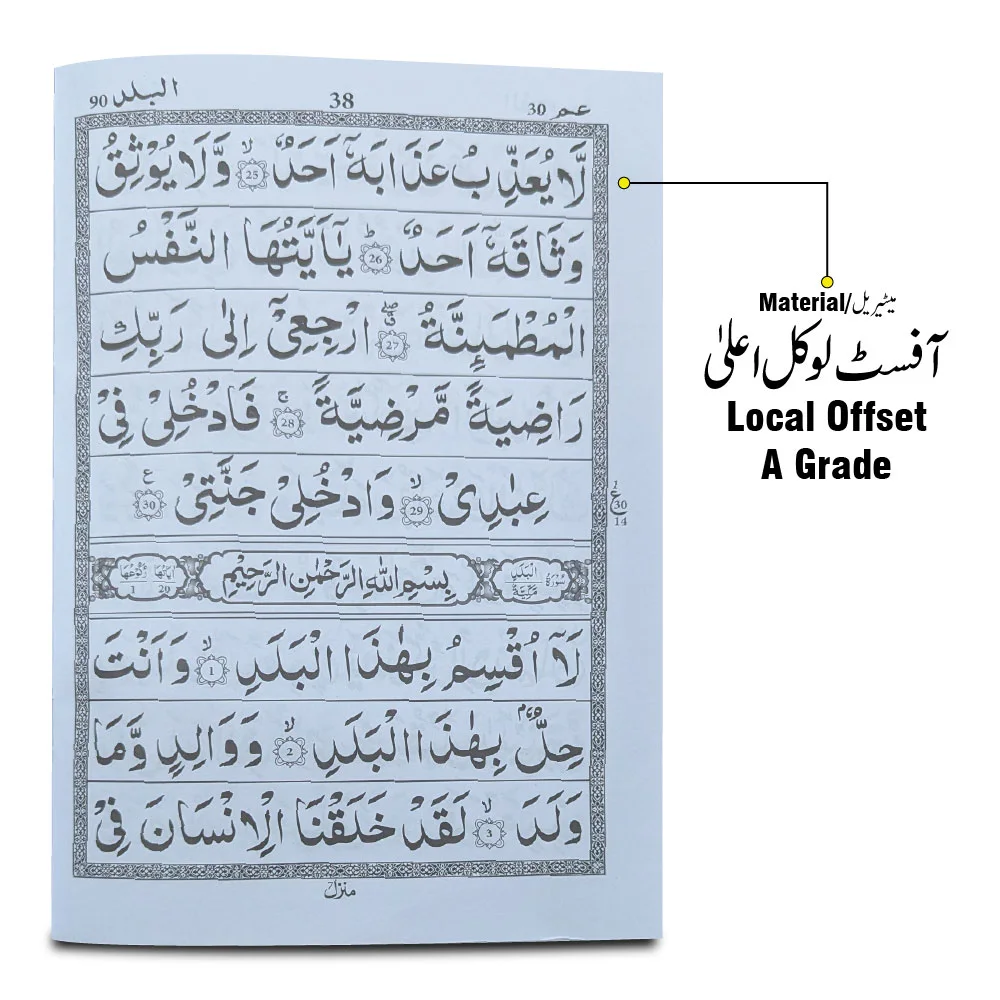 البلد 90
38
عم 30
لَّا يُعَذِّبُ عَذَابَهٗۤ اَحَدٌ ۙ‏25 وَّلَا يُوْثِقُ
وَثَاقَهٗۤ اَحَدٌ ؕ‏26 يٰۤاَيَّتُهَا النَّفْسُ
الْمُطْمَىِٕنَّةُ ۗۖ‏27 ارْجِعِیْۤ اِلٰی رَبِّكِ
رَاضِيَةً مَّرْضِيَّةً ۚ‏28 فَادْخُلِیْ فِیْ
عِبٰدِیْ ۙ‏29 وَادْخُلِیْ جَنَّتِیْ 30 ع
ع 1 30 14
سُوْرَةُ الْبَلَدِ مَكِّيَّةٌ
بِسْمِ اللّٰهِ الرَّحْمٰنِ الرَّحِيْمِ
اٰيَاتُهَا 20 رُكُوْعُهَا 1
لَاۤ اُقْسِمُ بِهٰذَا الْبَلَدِ ۙ‏1 وَاَنْتَ
حِلٌّۢ بِهٰذَا الْبَلَدِ ۙ‏2 وَوَالِدٍ وَّمَا
وَلَدَ ۙ‏3 لَقَدْ خَلَقْنَا الْاِنْسَانَ فِیْ
منزل
Material/میٹیریل
آفسٹ لوکل اعلیٰ
Local Offset
A Grade